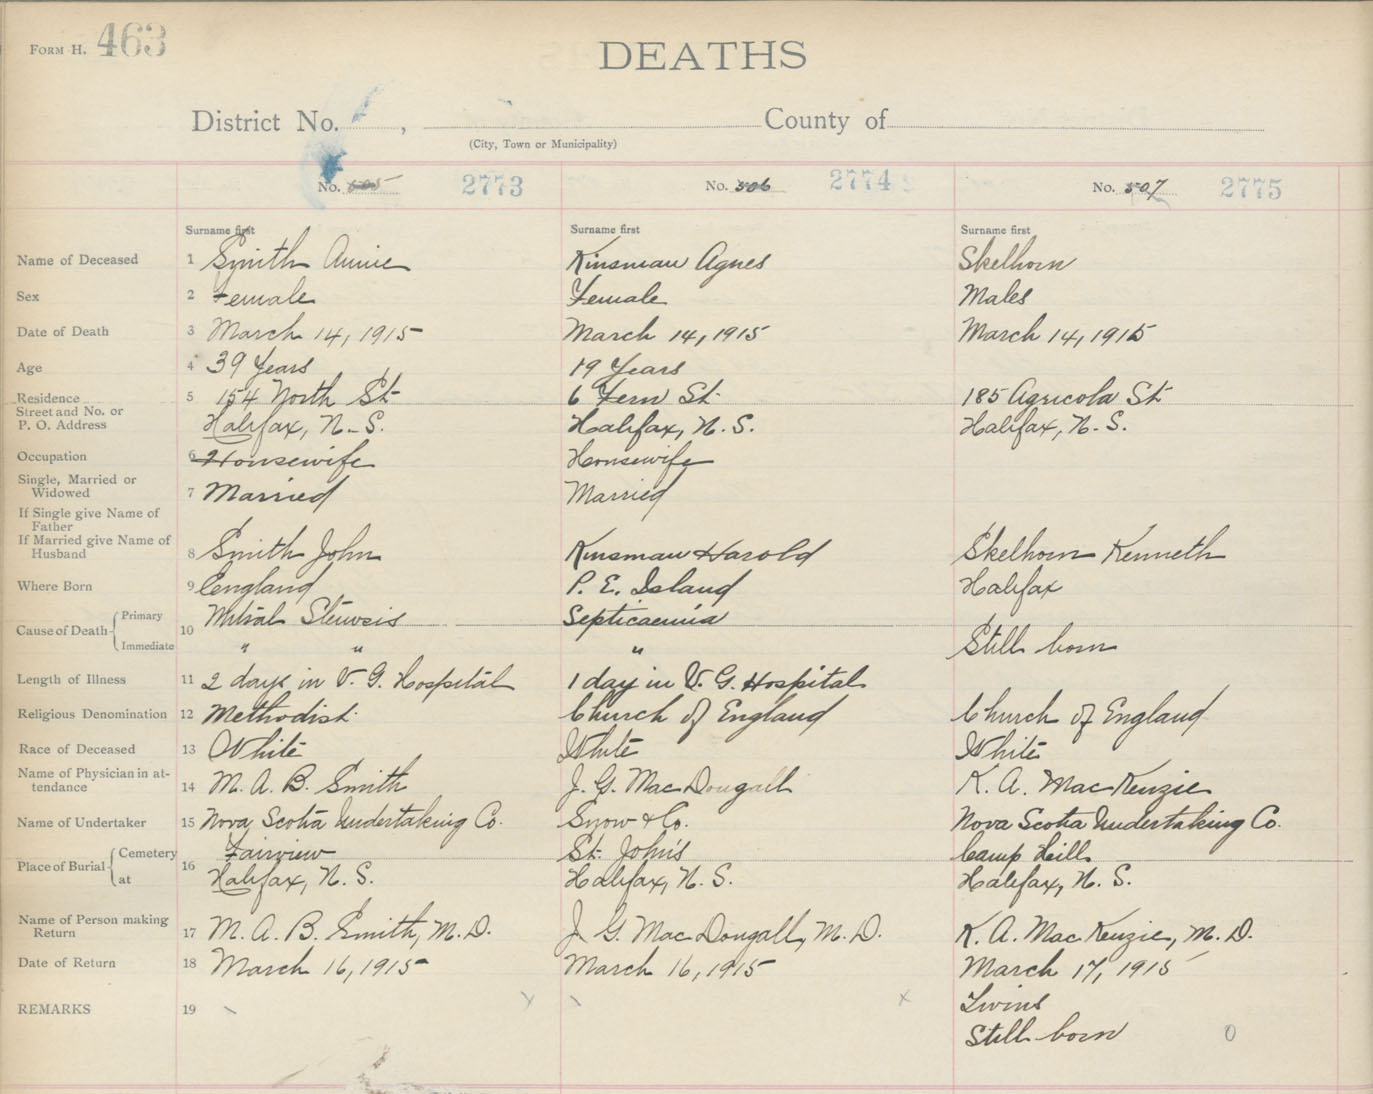 FORM H. 463
DEATHS
District No. , County of
(City, Town or Municipality)
No. 505 2773 No. 506 2774 No. 507 2775
Surname first Surname first Surname first
Name of Deceased 1 Smith Annie Kinsman Agnes Skelhorn
Sex 2 Female Female Males
Date of Death 3 March 14, 1915 March 14, 1915 March 14, 1915
Age 4 39 Years 19 Years
Residence 5 154 North St. 6 Fern St. 185 Agricola St.
Street and No. or
P. O. Address Halifax, N. S. Halifax, N. S. Halifax, N. S.
Occupation 6 Housewife Housewife
Single, Married or
Widowed 7 Married Married
If Single give Name of
Father
If Married give Name of
Husband 8 Smith John Kinsman Harold Skelhorn Kenneth
Where Born 9 England P. E. Island Halifax
Cause of Death Primary 10 Mitral Stenosis Septicaemia
Immediate " " " Still born
Length of Illness 11 2 days in V. G. Hospital 1 day in V. G. Hospital
Religious Denomination 12 Methodist Church of England Church of England
Race of Deceased 13 White White White
Name of Physician in at-
tendance 14 M. A. B. Smith J. G. MacDougall K. A. MacKenzie
Name of Undertaker 15 Nova Scotia Undertaking Co. Snow & Co. Nova Scotia Undertaking Co.
Place of Burial Cemetery 16 Fairview St. John's Camp Hill
at Halifax, N. S. Halifax, N. S. Halifax, N. S.
Name of Person making
Return 17 M. A. B. Smith, M. D. J. G. MacDougall, M. D. K. A. MacKenzie, M. D.
Date of Return 18 March 16, 1915 March 16, 1915 March 17, 1915
REMARKS 19 Twins
Still born